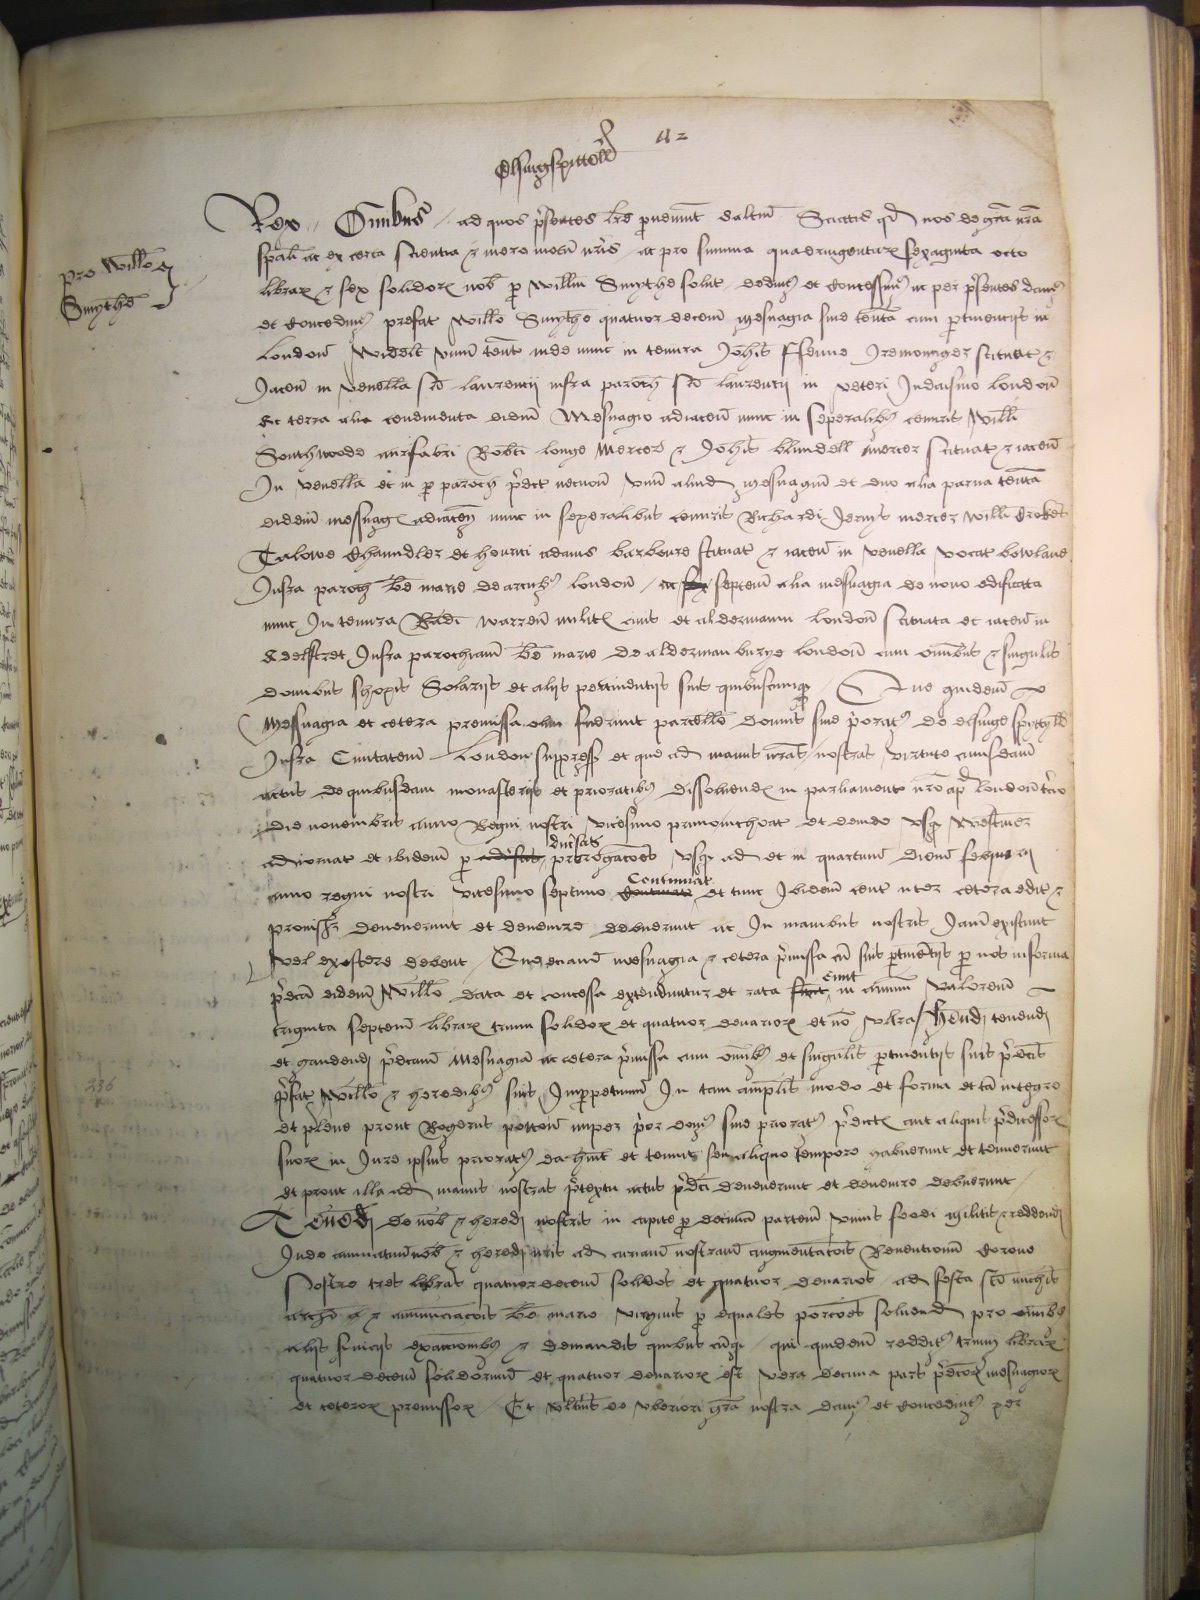 Elsingspittell
Rex Omnibus ad quos p̄sentes lr̄e pvenerint saltm̄ Sciatis qd nos de gr̄a nr̄a
sp̄ali ac ex certa sciencia & mero motu nr̄is ac pro summa quadringentarꝝ sexaginta octo
pro Willo
Smythe
librarꝝ & sex solidorꝝ nob̄ p Willm̄ Smythe solut dedimꝰ et concessimꝰ ac per p̄sentes damꝰ
et concedimꝰ prefat Willo Smythe quatuor decem mesuagia sive ten̄ta cum ptinentijs in
London Videlt̄ unū ten̄t inde nunc in tenura Joh̄is Ffenne Iremonger scituat &
Jacen̄ in venella sci laurencij infra paroch sci laurencij in veteri Judaismo London
ac terra alia eidem Mesuagio adiacen̄ nunc in seperalibꝰ tenuris Will̄i
Southwoode aurifabri Rob̄ti longe Mercer & Joh̄is blundell mercer scituat & iacen̄
In venella et in paroch p̄dict necnon unū aliud mesuagiū et duo alia parva ten̄ta
eidem messuag adiacen̄ nunc in seperalibus tenuris Richardi Jervis mercer Will̄i
Talowe Chaundler et henrici adams barboure scituat & iacen̄ in venella vocat bowlane
Infra paroch be marie de arcubꝰ London ac septem alia mesuagia de novo edificata
nunc In tenura Rad̄i Warren militꝭ civis et aldermanni London scituata et iacen̄ in
Infra parochiam be marie de aldermanburye London cum om̄ibus & singulis
domibus shopis Solarijs et alijs pertinentijs suis quibuscumqꝫ Que quidem
Messuagia et cetera premissa olim fuerunt parcell domus sive p̄oratꝰ de elsinge spyttyll
Infra Civitatem London suppress et que ad manus nr̄as nostras virtute cuiusdam
actus de quibusdam monasterijs et prioratibꝰ dissolvend in parliamento nr̄o apd London t̄cio
die novembris anno Regni nostri vicesimo primo inchoat et deinde usqꝫ Westm̄
adiornat et ibidem p div̄sas prorogac̄ões usqꝫ ad et in quartum diem februarij
anno regni nostri vicesimo septimo Continuat et tunc Ibidem tent inter cetera edit &
devenerunt et devenire debuerunt ac In manibus nostris Jam existunt
vel existere debent Que eciam mesuagia & cetera p̄missa cū suis ptinen̄tijs p nos in forma
p̄dc̄a eidem Willo data et concessa extenduntur et rata sunt in annuū valorem
triginta septem librarꝝ trium solidorꝝ et quatuor denariorꝝ et nō ultra Hend tenend
et gaudend p̄dictam Mesuagia ac cetera p̄missa cum om̄ibꝰ et singulis ptinentijs suis p̄dc̄is
p̄fat Willo & heredibꝰ suis Imppetuum In tam amplis modo et forma et tā integre
et plene prout Rogerus potton nuper p̄or domꝰ sive prioratꝰ p̄dictꝭ aut aliquis p̄dicessorꝝ
suorꝝ in Jure ipsius prioratꝰ ea h̄uit et tenuit seu aliquo tempore habuerunt et tenuerunt
et prout illa ad manus nostras p̄textu actus p̄dc̄i devenerunt et devenire debuerunt
Tenend de nob̄ & hered nostris in capite p decimam partem unius feodi militis & reddend
Inde annuatim nob̄ & hered nr̄is ad curiam nostram augmentac̄ois Revencionum Corone
Nostre tres libras quatuordecem solidos et quatuor denarios ad festa sci mich̄is
arch̄ & annunciac̄ois be marie virginis p equales porc̄ões solvend pro om̄ibꝰ
alijs servicijs exaccionibꝰ & demandis quibuscūqꝫ qui quidem redditꝰ trium librarꝝ
quatuor decem solidorum et quatuor denariorꝝ est vera decima pars p̄dcorꝝ mesuagiorꝝ
et ceterorꝝ premissorꝝ Et ult̄ius de uberiori gr̄a nostra damꝰ et concedimꝰ per